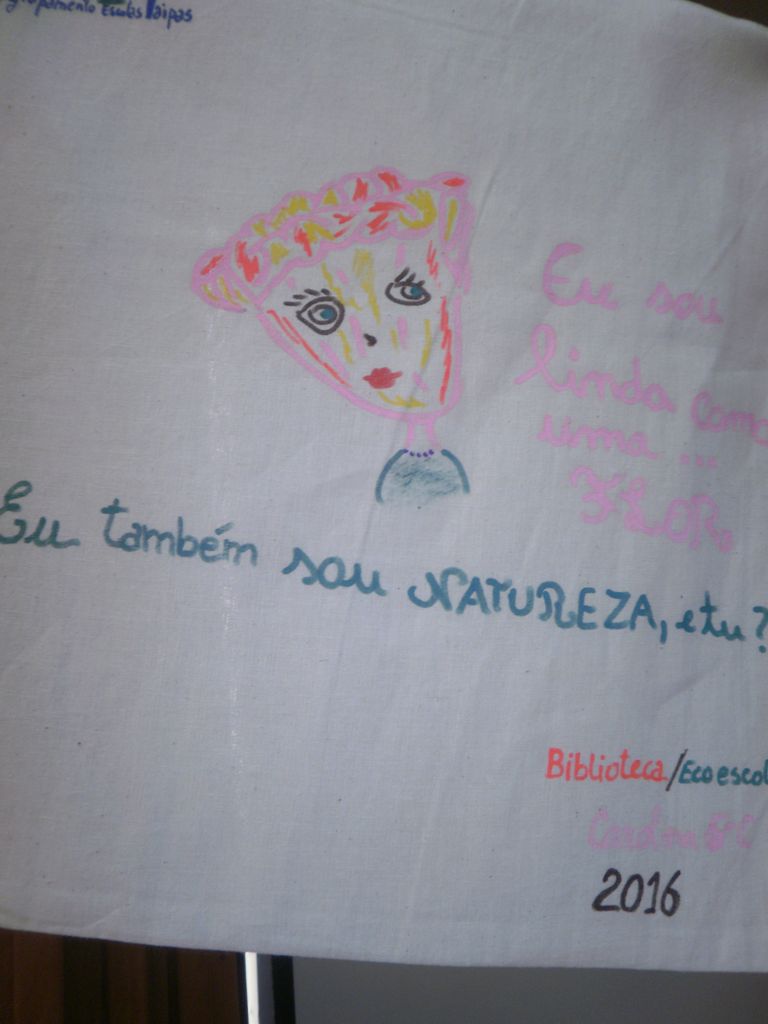 Escolas Taipas
Eu sou
linda como
uma ...
FLOR.
Eu também sou NATUREZA, e tu?
Biblioteca/Ecoescol
5º C
2016